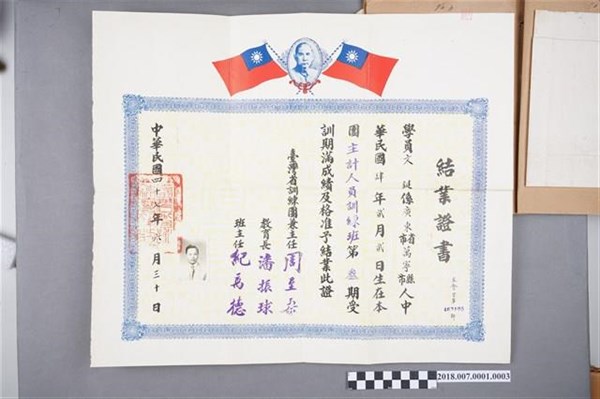 結業證書
學員文 係廣東省萬寧縣市人中
華民國肆年貳月貳日生在本
團主計人員訓練班第叁期受
訓期滿成績及格准予結業此證
臺灣省訓練團兼主任 周至柔
教育長 潘振球
班主任 紀萬德
中華民國四十九年 月三十日
2018.007.0001.0003